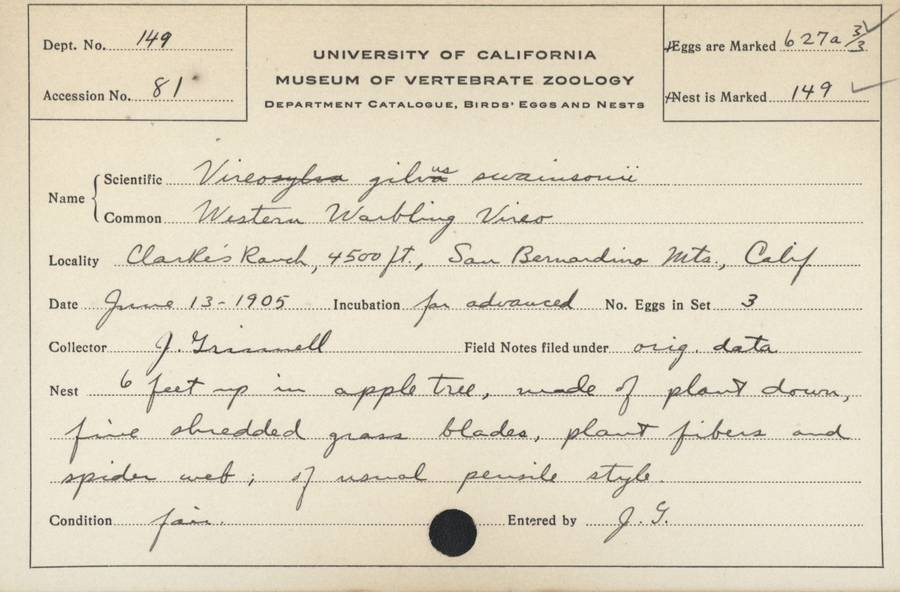 Dept. No. 149
Accession No. 81
UNIVERSITY OF CALIFORNIA
MUSEUM OF VERTEBRATE ZOOLOGY
DEPARTMENT CATALOGUE, BIRDS' EGGS AND NESTS
Eggs are Marked 627a 3/3
Nest is Marked 149
Name
Scientific Vireosylva gilvus swainsonii
Common Western Warbling Vireo
Locality Clarke's Ranch, 4500 ft., San Bernardino Mts., Calif
Date June 13-1905 Incubation far advanced No. Eggs in Set 3
Collector J. Grinnell Field Notes filed under orig. data
Nest 6 feet up in apple tree, made of plant down,
fine shredded grass blades, plant fibers and
spider web; of usual pensile style.
Condition fair. Entered by J. G.